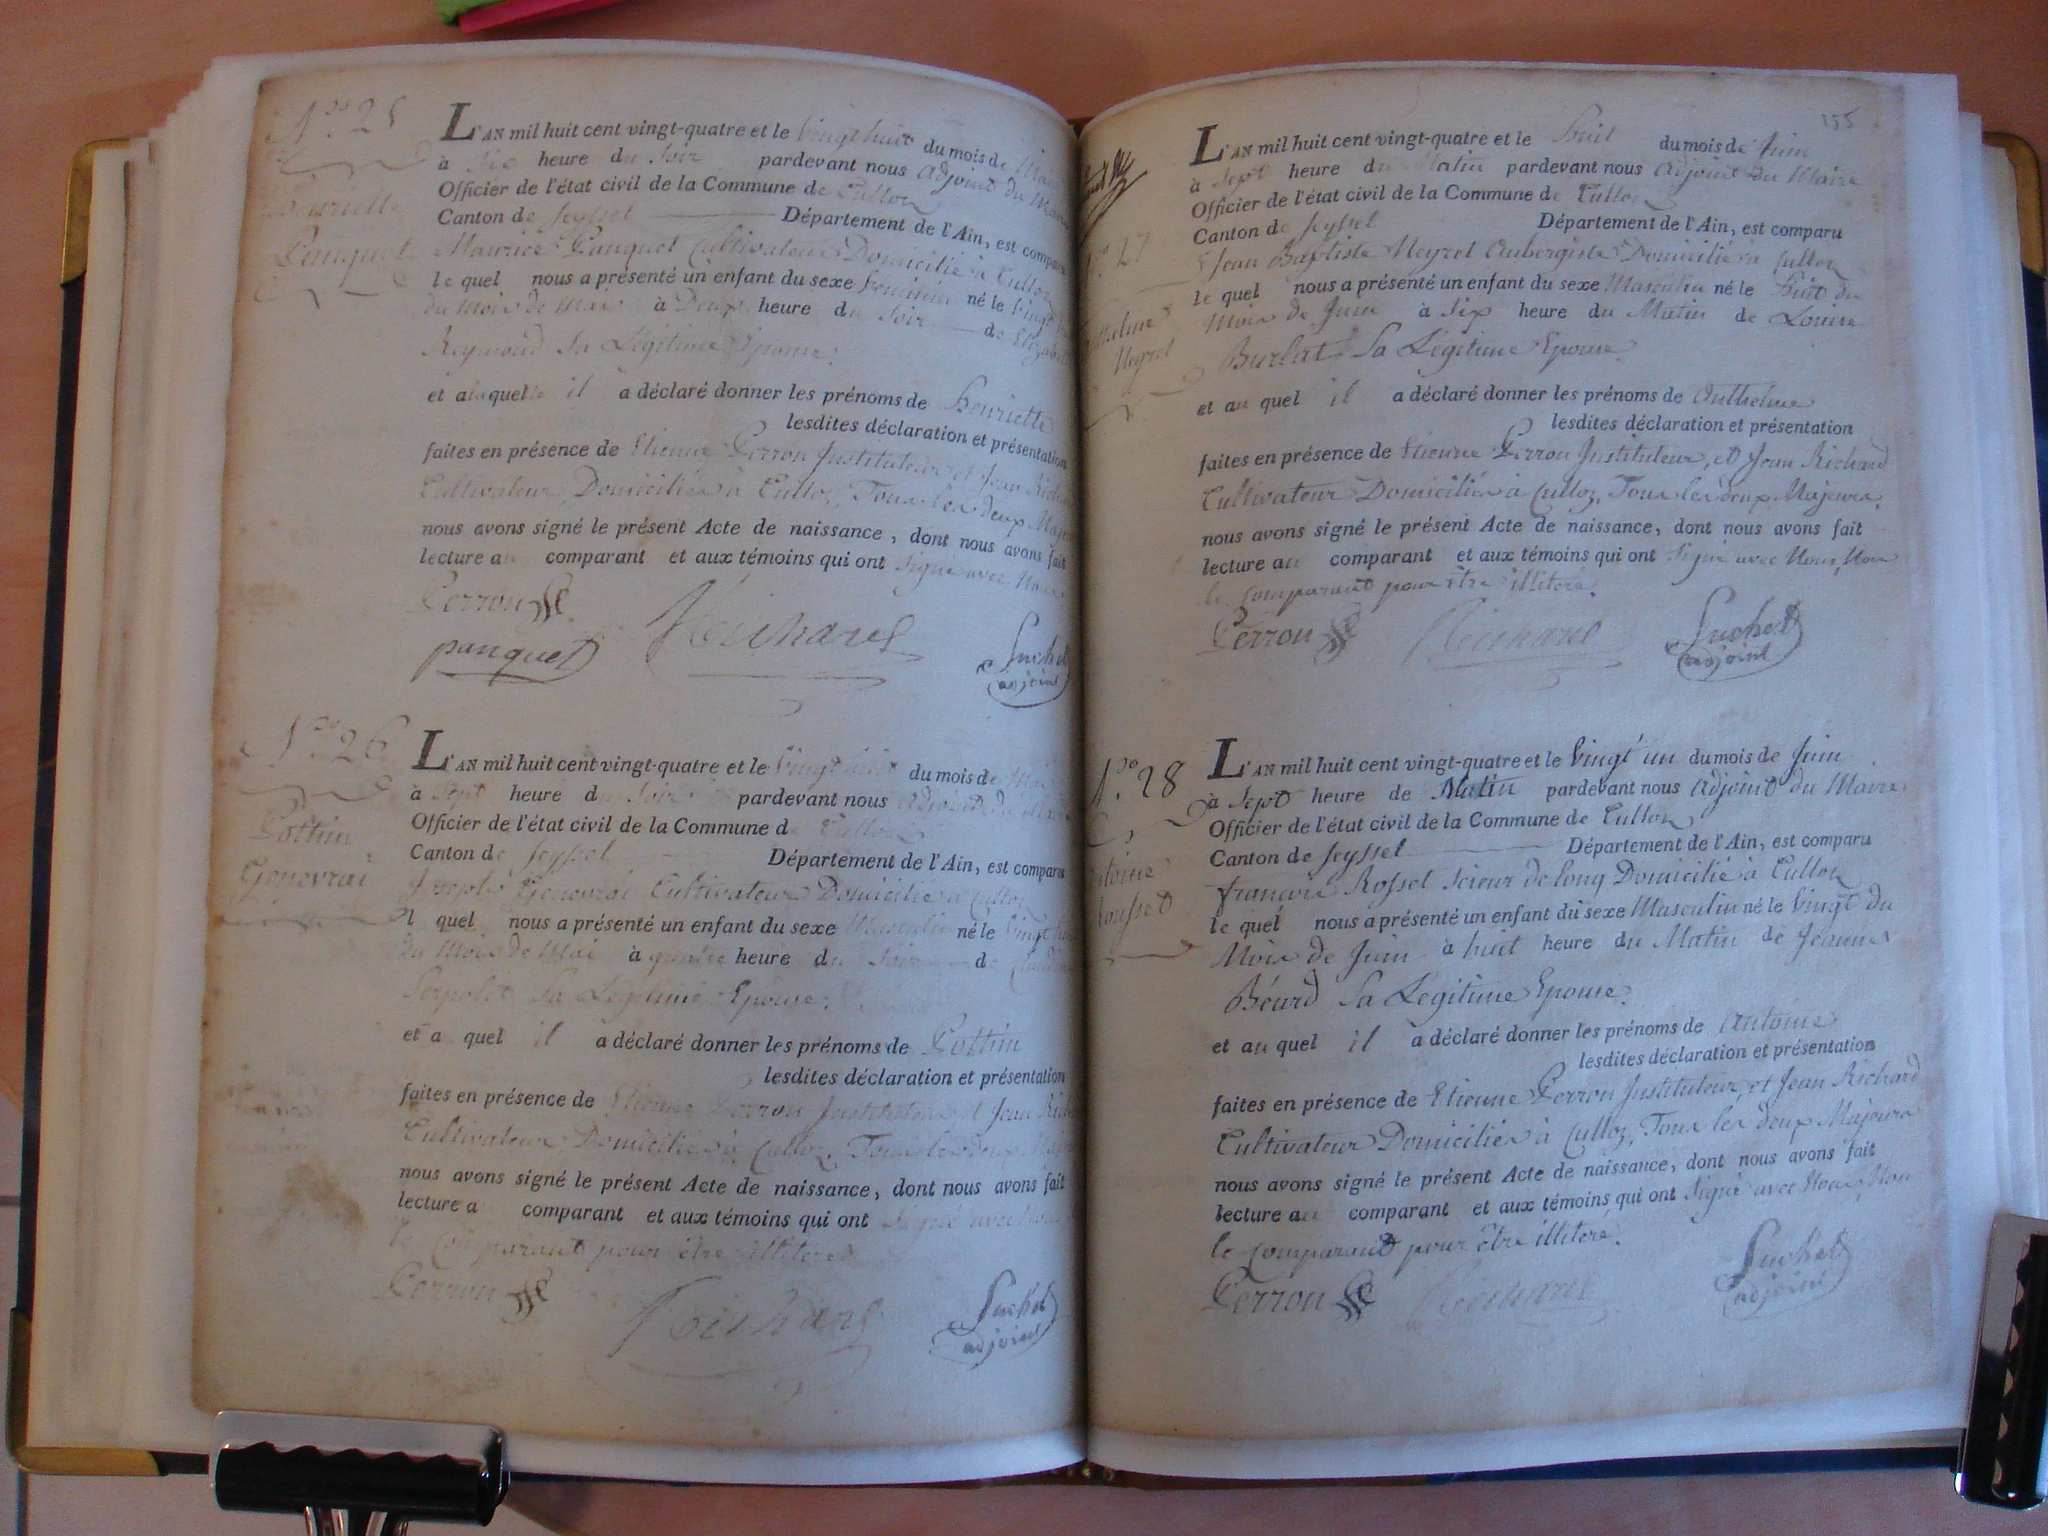 N.º 25
Henriette
Panquet
L'AN mil huit cent vingt-quatre et le vingt huit du mois de Mai
à Six heure du Soir pardevant nous adjoint du Maire
Officier de l'état civil de la Commune de Culloz
Canton de Seyssel Département de l'Ain, est comparu
Maurice Panquet Cultivateur Domicilié à Culloz
le quel nous a présenté un enfant du sexe feminin né le Vingt
du Mois de Mai à Deux heure du Soir de Elizabeth
Reymond Sa Légitime Epouse.
et auquel il a déclaré donner les prénoms de Henriette
lesdites déclaration et présentation
faites en présence de Etienne Perron Instituteur et Jean Richard
Cultivateur, Domiciliés à Culloz, Tous les deux Majeurs
nous avons signé le présent Acte de naissance, dont nous avons fait
lecture au comparant et aux témoins qui ont Signé avec Nous
Perron
panquet Richard Suchet
adjoint
N.º 26
Pottin
Genevrai
L'AN mil huit cent vingt-quatre et le Vingt huit du mois de Mai
à Sept heure du Soir pardevant nous adjoint du Maire
Officier de l'état civil de la Commune de Culloz
Canton de Seyssel Département de l'Ain, est comparu
Joseph Genevrai Cultivateur Domicilié à Culloz
l quel nous a présenté un enfant du sexe Masculin né le Vingt huit
du Mois de Mai à quatre heure du Soir de
Serpolet Sa Légitime Epouse.
et a quel il a déclaré donner les prénoms de Pottin
lesdites déclaration et présentation
faites en présence de Etienne Perron Instituteur et Jean Richard
Cultivateur, Domiciliés à Culloz, Tous les deux Majeurs
nous avons signé le présent Acte de naissance, dont nous avons fait
lecture a comparant et aux témoins qui ont Signé avec Nous
le Comparant pour être illitere.
Perron Richard Suchet
adjoint
155
N.º 27
Anthelme
Neyret
L'AN mil huit cent vingt-quatre et le huit du mois de Juin
à Sept heure du Matin pardevant nous adjoint du Maire
Officier de l'état civil de la Commune de Culloz
Canton de Seyssel Département de l'Ain, est comparu
Jean Baptiste Neyret Aubergiste Domicilié à Culloz
le quel nous a présenté un enfant du sexe Masculin né le huit du
Mois de Juin à Six heure du Matin de Louise
Burlat Sa Légitime Epouse.
et au quel il a déclaré donner les prénoms de Anthelme
lesdites déclaration et présentation
faites en présence de Etienne Perron Instituteur, et Jean Richard
Cultivateur Domiciliés à Culloz, Tous les deux Majeurs.
nous avons signé le présent Acte de naissance, dont nous avons fait
lecture au comparant et aux témoins qui ont Signé avec Nous, Non
le Comparant pour être illitere.
Perron Richard Suchet
adjoint
N.º 28
Antoine
Rousset
L'AN mil huit cent vingt-quatre et le Vingt un du mois de Juin
à Sept heure de Matin pardevant nous adjoint du Maire
Officier de l'état civil de la Commune de Culloz
Canton de Seyssel Département de l'Ain, est comparu
françois Rosset Scieur de long Domicilié à Culloz
le quel nous a présenté un enfant du sexe Masculin né le Vingt du
Mois de Juin à huit heure du Matin de Jeanne
Béard Sa Légitime Epouse.
et au quel il a déclaré donner les prénoms de Antoine
lesdites déclaration et présentation
faites en présence de Etienne Perron Instituteur, et Jean Richard
Cultivateur Domiciliés à Culloz, Tous les deux Majeurs
nous avons signé le présent Acte de naissance, dont nous avons fait
lecture au comparant et aux témoins qui ont Signé avec Nous, Non
le Comparant pour être illitere.
Perron Richard Suchet
adjoint